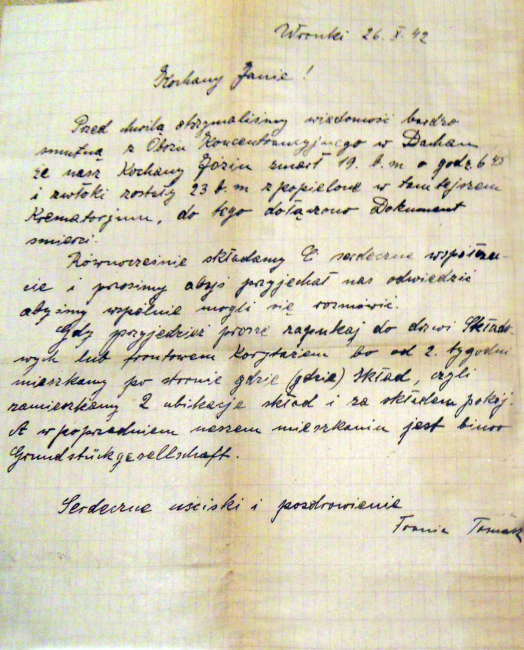 Wronki 26. X. 42
Kochany Janie!
Przed chwilą otrzymaliśmy wiadomość bardzo
smutną z Obozu Koncentracyjnego w Dachau
że nasz Kochany Józiu zmarł 19. b.m o godz. 6 45
i zwłoki zostały 23 b.m zpopielone w tamtejszem
Krematorjum, do tego dołączono Dokument
śmierci.
Równocześnie składamy Ci serdeczne współczu-
cie i prosimy abyś przyjechał nas odwiedzić
abyśmy wspólnie mogli się rozmówić.
Gdy przyjedziesz proszę zapukaj do drzwi Składo-
wych lub frontowem Korytarzem bo od 2. tygodni
mieszkamy po stronie gdzie (gdzie) Skład, czyli
zamieszkamy 2 ubikacje skład i za składem pokój.
A w poprzedniem naszem mieszkaniu jest biuro
Grundstückgesellschaft.
Serdeczne uściski i pozdrowienie